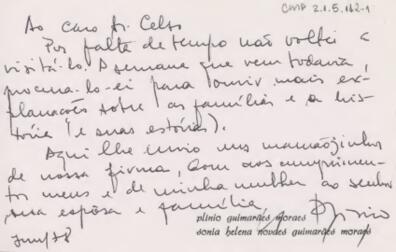 CMP 2.1.5.162-1
Ao caro Dr. Celso
Por falta de tempo não voltei a
visitá-lo. A semana que vem todavia,
procura-lo-ei para ouvir mais ex-
planações sobre as famílias e a his-
tória (e suas estórias).
Aqui lhe envio uns mamãozinhos
de nossa firma, com os cumprimen-
tos meus e de minha mulher ao senhor,
sua esposa e família,
Plinio
plinio guimarães moraes
sonia helena novaes guimarães moraes
Jun/78